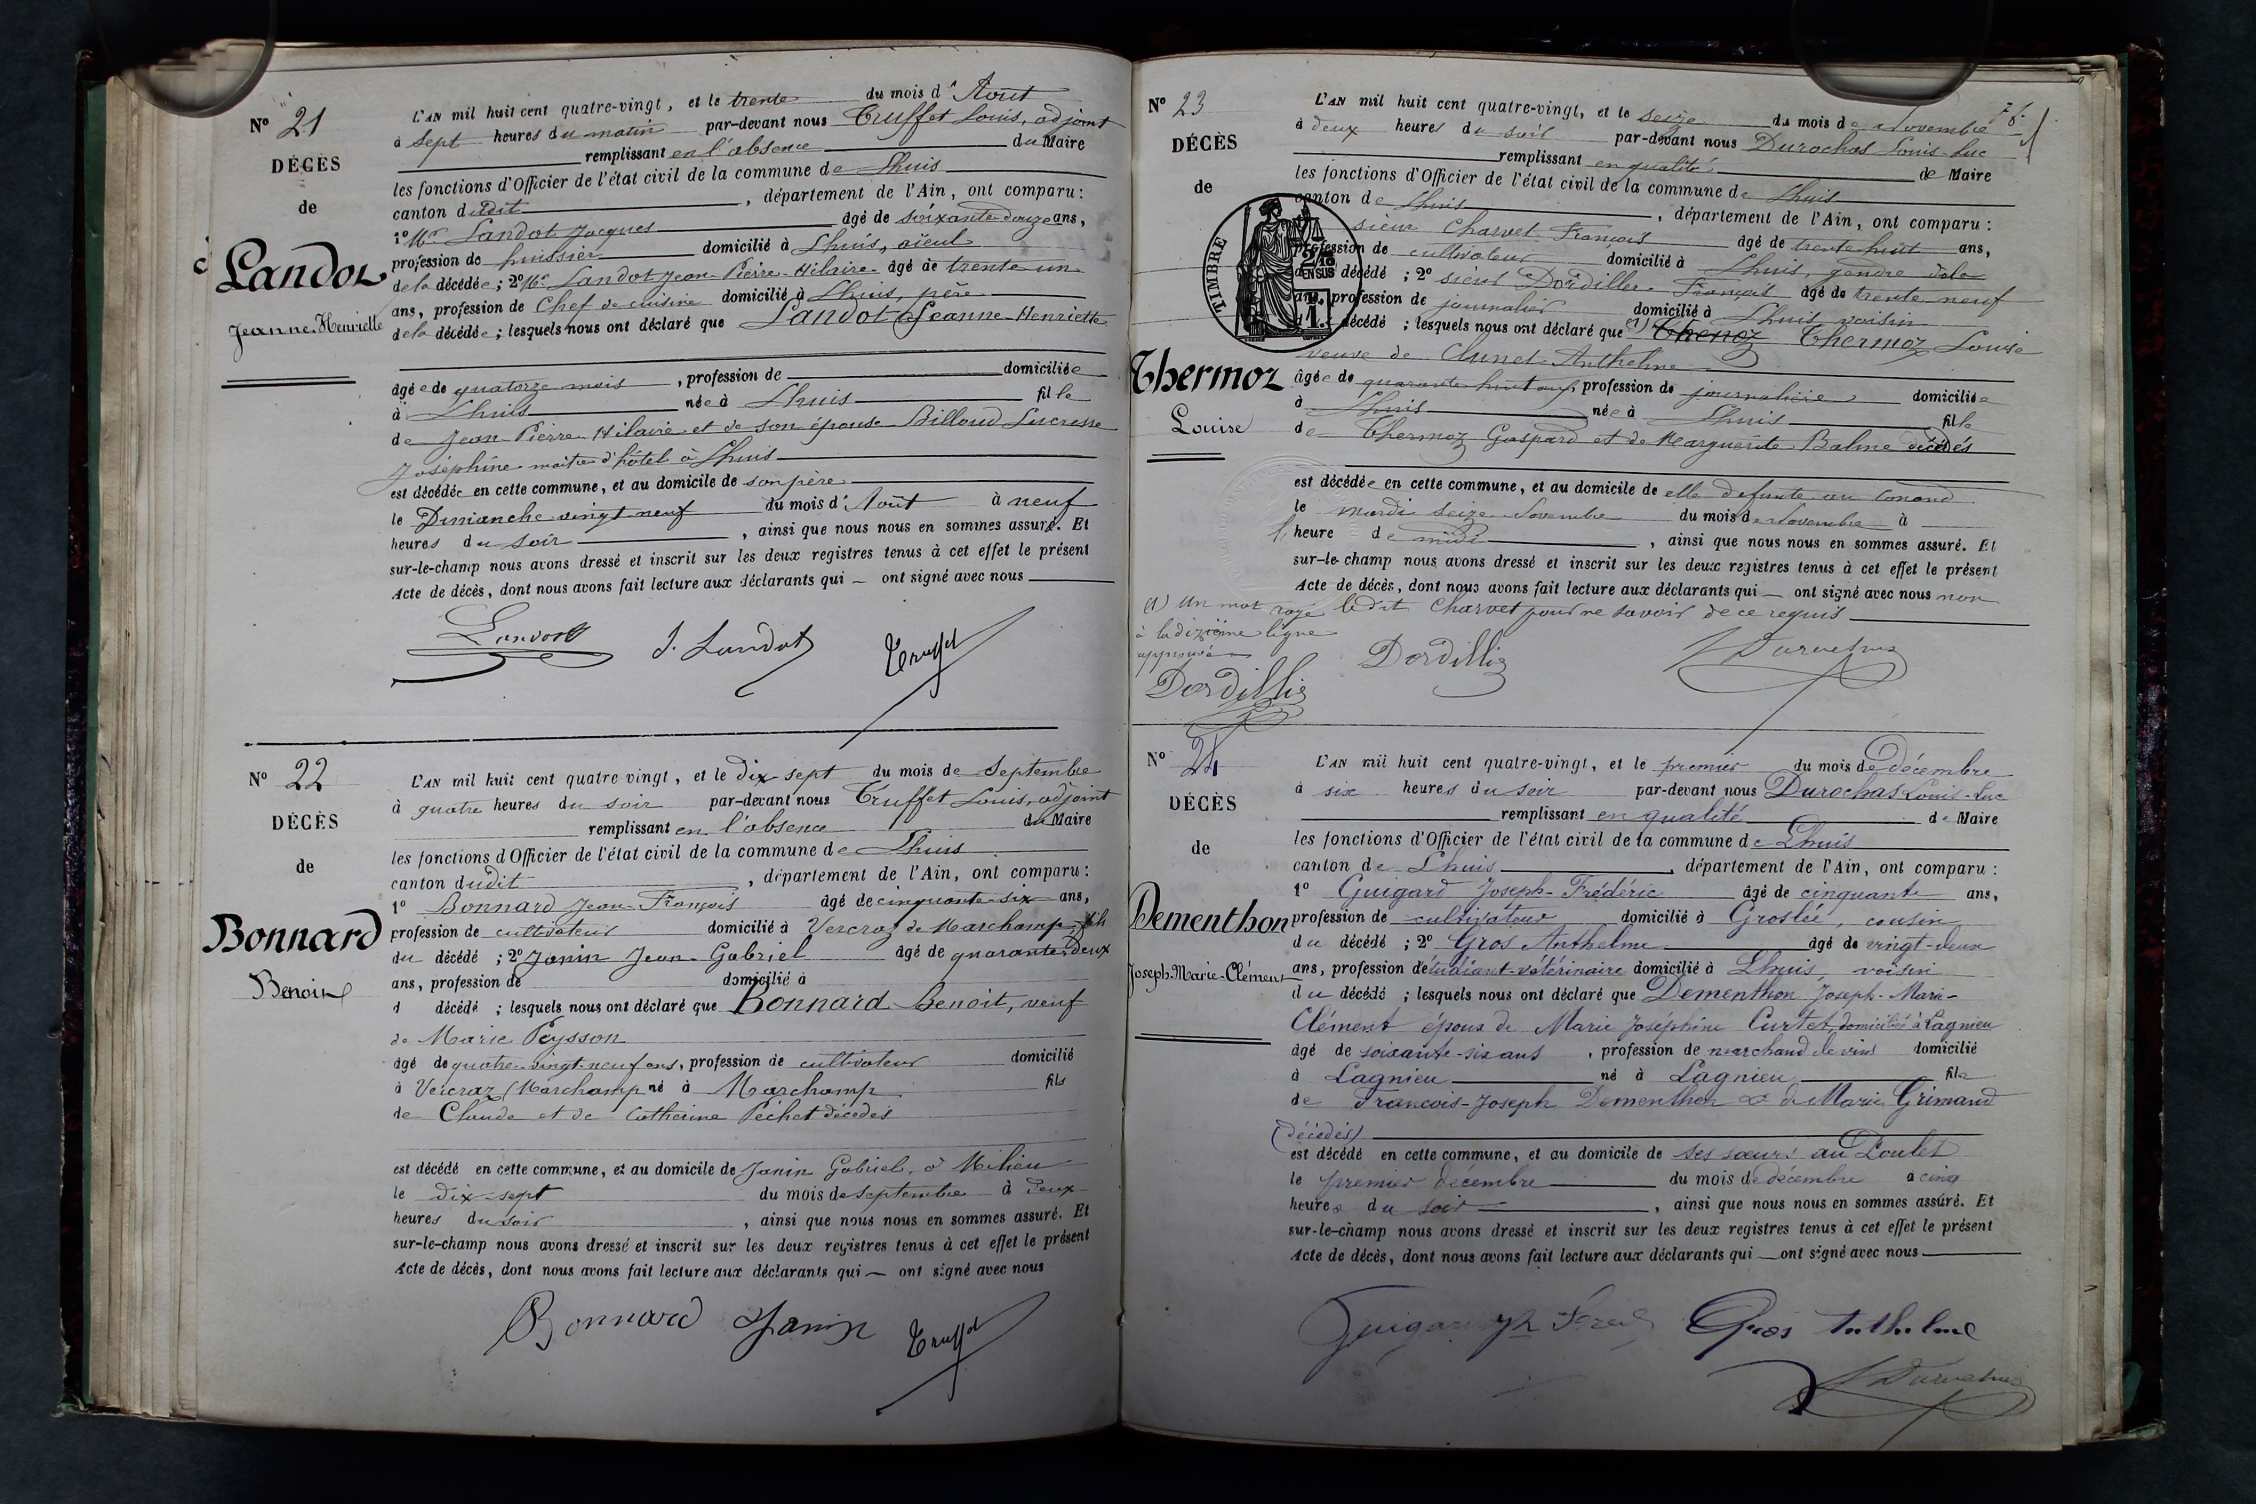 N° 21
DÉCÈS
de
Landot
Jeanne-Henriette
L'AN mil huit cent quatre-vingt, et le trente du mois d'Août
à sept heures du matin par-devant nous Truffet Louis, adjoint
remplissant en l'absence du Maire
les fonctions d'Officier de l'état civil de la commune de Lhuis
canton dudit, département de l'Ain, ont comparu:
1° Mr Landot Jacques âgé de soixante douze ans,
profession de huissier domicilié à Lhuis, aïeul
de la décédée; 2° Mr Landot Jean-Pierre-Hilaire âgé de trente un
ans, profession de Chef de cuisine domicilié à Lhuis, père
de la décédée; lesquels nous ont déclaré que Landot Jeanne-Henriette
âgée de quatorze mois, profession de domiciliée
à Lhuis née à Lhuis fille
de Jean Pierre Hilaire et de son épouse Billoud Lucresse
Joséphine maître d'hôtel à Lhuis
est décédée en cette commune, et au domicile de son père
le Dimanche vingt neuf du mois d'Août à neuf
heures du soir, ainsi que nous nous en sommes assuré. Et
sur-le-champ nous avons dressé et inscrit sur les deux registres tenus à cet effet le présent
Acte de décès, dont nous avons fait lecture aux déclarants qui ont signé avec nous
Landot J. Landot Truffet
N° 22
DÉCÈS
de
Bonnard
Benoit
L'AN mil huit cent quatre vingt, et le dix-sept du mois de Septembre
à quatre heures du soir par-devant nous Truffet Louis, adjoint
remplissant en l'absence du Maire
les fonctions d'Officier de l'état civil de la commune de Lhuis
canton dudit, département de l'Ain, ont comparu:
1° Bonnard Jean-François âgé de cinquante-six ans,
profession de cultivateur domicilié à Vercraz de Marchamp, fils
du décédé; 2° Janin Jean-Gabriel âgé de quarante-deux
ans, profession de domicilié à
d décédé; lesquels nous ont déclaré que Bonnard Benoit, veuf
de Marie Peysson
âgé de quatre-vingt-neuf ans, profession de cultivateur domicilié
à Vercraz (Marchamp né à Marchamp fils
de Claude et de Catherine Péchet décédés
est décédé en cette commune, et au domicile de Janin Gabriel, à Milieu
le dix-sept du mois de septembre à deux
heures du soir, ainsi que nous nous en sommes assuré. Et
sur-le-champ nous avons dressé et inscrit sur les deux registres tenus à cet effet le présent
Acte de décès, dont nous avons fait lecture aux déclarants qui ont signé avec nous
Bonnard Janin Truffet
N° 23
DÉCÈS
de
TIMBRE
Thermoz
Louise
L'AN mil huit cent quatre-vingt, et le seize du mois de Novembre
à deux heures du soir par-devant nous Durochas Louis-Luc
remplissant en qualité de Maire
les fonctions d'Officier de l'état civil de la commune de Lhuis
canton de Lhuis, département de l'Ain, ont comparu:
sieur Charvet François âgé de trente huit ans,
profession de cultivateur domicilié à Lhuis, gendre de la
décédé; 2° sieur Dordillier François âgé de trente-neuf
ans, profession de journalier domicilié à Lhuis voisin
décédé; lesquels nous ont déclaré que (1) Thenoz Thermoz Louise
veuve de Clunet Anthelme
âgée de quarante huit ans, profession de journalière domiciliée
à Lhuis née à Lhuis fille
de Thermoz Gaspard et de Marguerite Balme décédés
est décédée en cette commune, et au domicile de elle defunte au
le mardi seize Novembre du mois de Novembre à
heure de midi, ainsi que nous nous en sommes assuré. Et
sur-le-champ nous avons dressé et inscrit sur les deux registres tenus à cet effet le présent
Acte de décès, dont nous avons fait lecture aux déclarants qui ont signé avec nous non
le dit Charvet pour ne savoir de ce requis
(1) Un mot rayé
à la dizième ligne
approuvé
Dordillié Dordillié Durochas
N° 24
DÉCÈS
de
Dementhon
Joseph-Marie-Clément
L'AN mil huit cent quatre-vingt, et le premier du mois de décembre
à six heures du soir par-devant nous Durochas Louis-Luc
remplissant en qualité de Maire
les fonctions d'Officier de l'état civil de la commune de Lhuis
canton de Lhuis, département de l'Ain, ont comparu:
1° Guigard Joseph-Frédéric âgé de cinquante ans,
profession de cultivateur domicilié à Groslée, cousin
du décédé; 2° Gros Anthelme âgé de vingt-deux
ans, profession d'étudiant-vétérinaire domicilié à Lhuis, voisin
du décédé; lesquels nous ont déclaré que Dementhon Joseph-Marie-
Clément époux de Marie Joséphine Curtet, domicilié à Lagnieu
âgé de soixante-six ans, profession de marchand de vins domicilié
à Lagnieu né à Lagnieu fils
de François-Joseph Dementhon & de Marie Grimand
(décédés)
est décédé en cette commune, et au domicile de ses sœurs au Poulet
le premier décembre du mois de décembre à cinq
heures du soir, ainsi que nous nous en sommes assuré. Et
sur-le-champ nous avons dressé et inscrit sur les deux registres tenus à cet effet le présent
Acte de décès, dont nous avons fait lecture aux déclarants qui ont signé avec nous
Gros Anthelme
Durochas